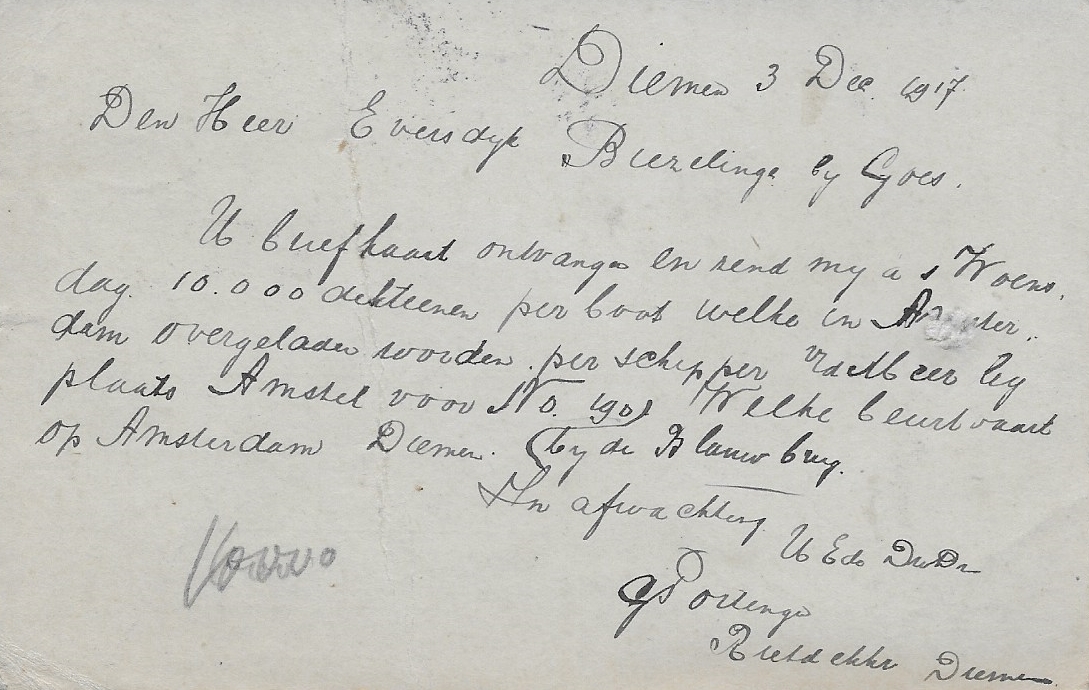 Diemen 3 Dec. 1917
Den Heer Eversdyk Biezelinge by Goes.
U briefkaart ontvangen en zend my a s Woens.
dag. 10.000 dekteenen per boot welke in Amster.
dam overgeladen worden. per schipper vd Meer leg
plaats Amstel voor No. 190 Welke beurtvaart
op Amsterdam Diemen. (by de Blauw brug.
In afwachting
U Ed DwDr
Portenge
Rietdekker Diemen.
10000